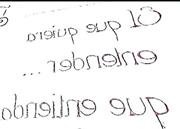 El que quiera
entender ...
que entienda